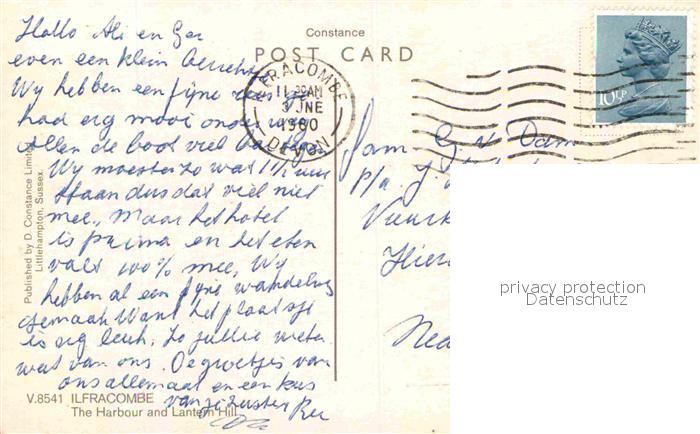 Constance
POST CARD
Hallo Ali en Ger
even een klein berichtje
Wy hebben een fyne reis
had erg mooi onder weg
Allen de boot viel
Wy moesten zo wat 1½ uur
staan dus dat viel niet
mee, Maar het hotel
is prima en het eten
valt 100% mee, Wy
hebben al een fyne wandeling
gemaakt Want het plaatsje
is erg leuk. Zo jullie weten
wat van ons. De groetjes van
ons allemaal en een kus
van je zuster
ILFRACOMBE
11 30AM
3 JNE
1980
DEVON
10½P
Fam G v Dam
p/a. J
Vuurk
Hier
Ned
privacy protection
Datenschutz
Published by D. Constance Limited
Littlehampton, Sussex.
V.8541 ILFRACOMBE
The Harbour and Lantern Hill